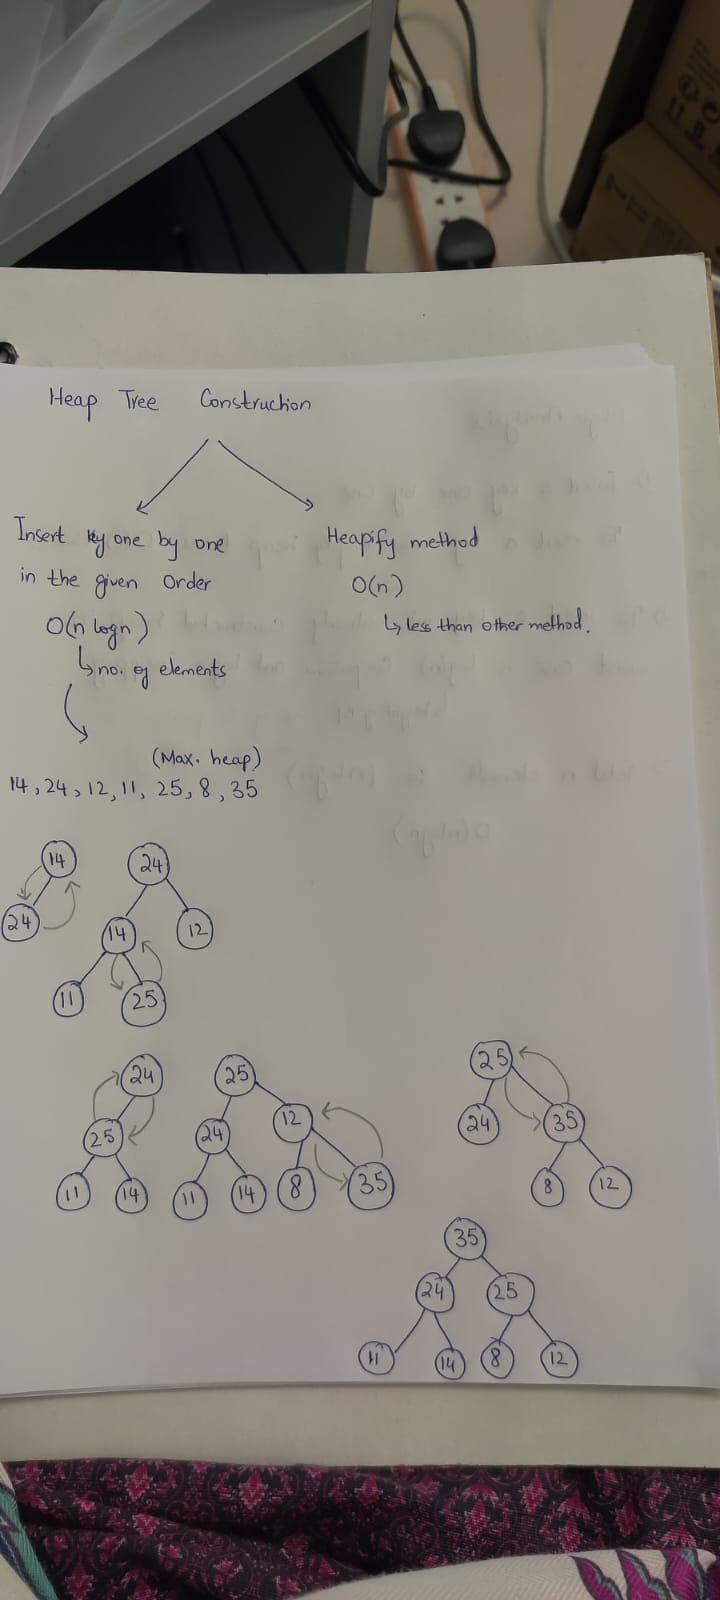 Heap Tree Construction
Insert key one by one
in the given order
O(n logn)
↳ no. of elements
Heapify method
O(n)
↳ less than other method.
(Max. heap)
14, 24, 12, 11, 25, 8, 35
14
24
24
14 12
11 25
24
25
11 14
25
24 12
11 14 8 35
25
24 35
8 12
35
24 25
11 14 8 12